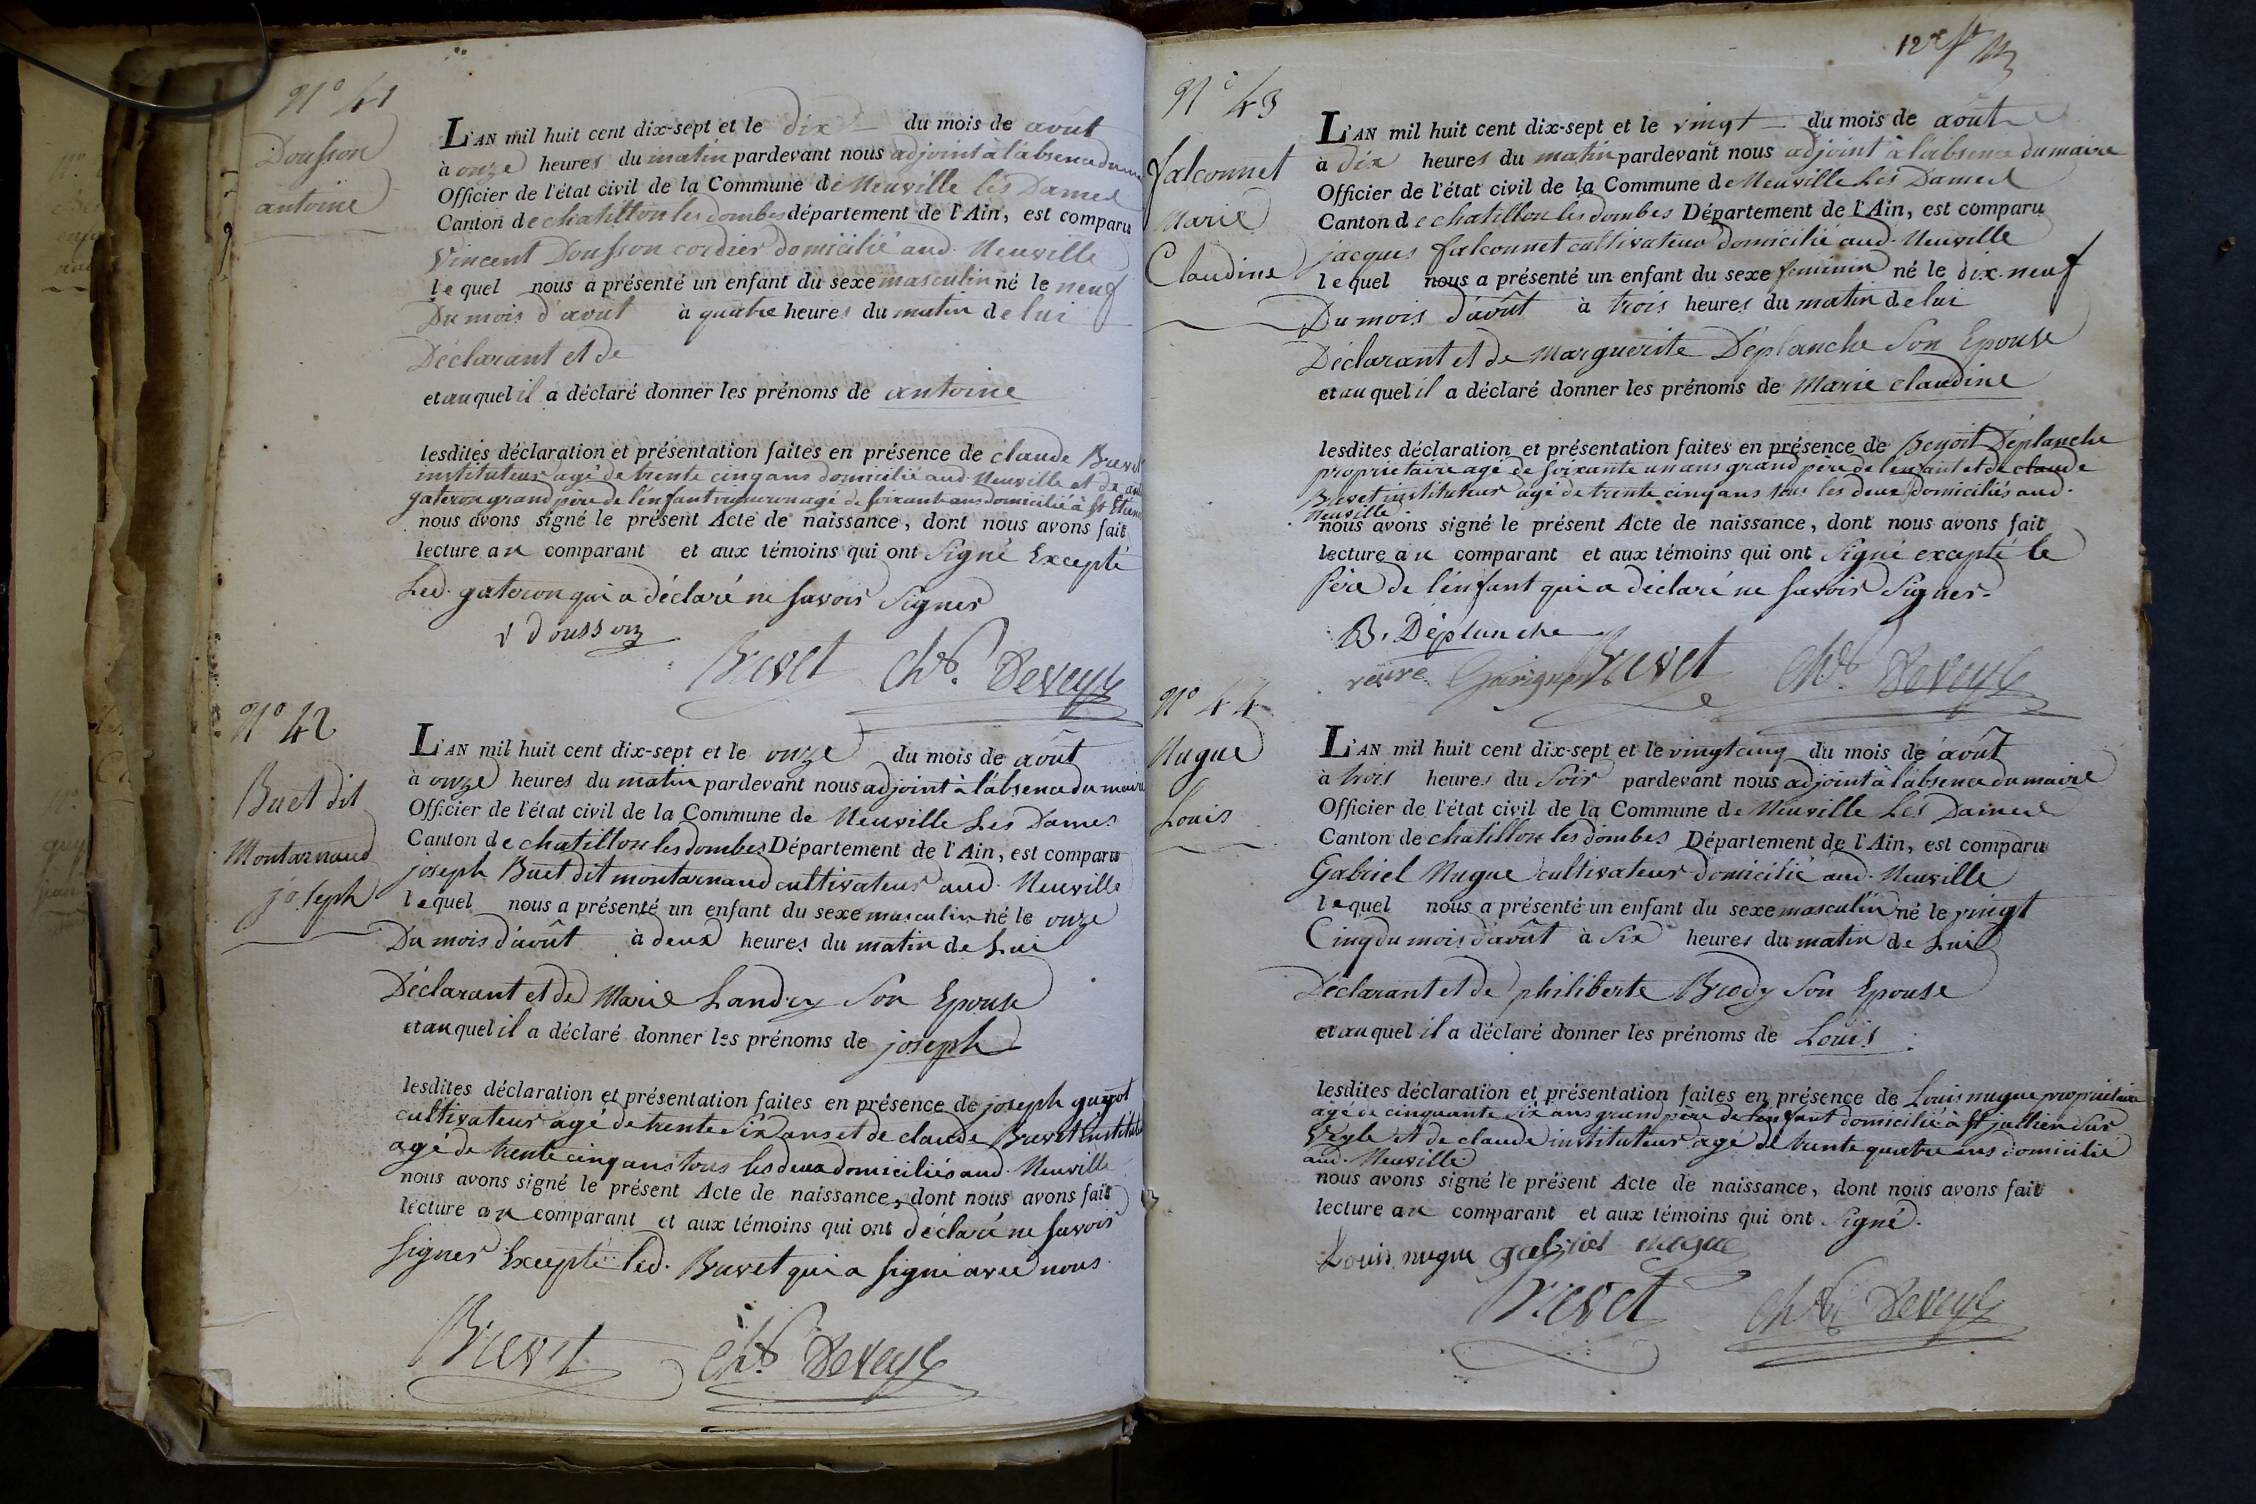 N° 41
Dousson
antoine
L'AN mil huit cent dix-sept et le dix du mois de août
à onze heures du matin pardevant nous adjoint à l'absence du
Officier de l'état civil de la Commune de Neuville les Dames
Canton de chatillon les dombes département de l'Ain, est comparu
Vincent Dousson cordier domicilié aud. Neuville
lequel nous a présenté un enfant du sexe masculin né le neuf
Du mois d'août à quatre heures du matin de lui
Déclarant et de
et auquel il a déclaré donner les prénoms de antoine
lesdites déclaration et présentation faites en présence de claude Brevet
instituteur agé de trente cinq ans domicilié aud. Neuville et de
gateron grand père de l'enfant vigneron agé de soixante ans domicilié à St Etienne
nous avons signé le présent Acte de naissance, dont nous avons fait
lecture au comparant et aux témoins qui ont Signé Excepté
Led. gateron qui a déclaré ne savoir Signer
v dousson
Brevet chr. Deveyle
N° 42
Buet dit
Montarnaud
joseph
L'AN mil huit cent dix-sept et le onze du mois de août
à onze heures du matin pardevant nous adjoint à l'absence du maire
Officier de l'état civil de la Commune de Neuville Les Dames
Canton de chatillon les dombes Département de l'Ain, est comparu
joseph Buet dit montarnaud cultivateur aud. Neuville
lequel nous a présenté un enfant du sexe masculin né le onze
Du mois d'août à deux heures du matin de Lui
Déclarant et de Marie Landry Son Epouse
et auquel il a déclaré donner les prénoms de joseph
lesdites déclaration et présentation faites en présence de joseph guyot
cultivateur agé de trente Six ans et de claude Brevet instituteur
agé de trente cinq ans tous les deux domiciliés aud. Neuville
nous avons signé le présent Acte de naissance, dont nous avons fait
lecture au comparant et aux témoins qui ont déclaré ne savoir
signer Excepté led. Brevet qui a signé avec nous.
Brevet chr. Deveyle
12e ft
N° 43
falconnet
Marie
Claudine
L'AN mil huit cent dix-sept et le vingt du mois de août
à dix heures du matin pardevant nous adjoint à l'absence du maire
Officier de l'état civil de la Commune de Neuville Les Dames
Canton de chatillon les dombes Département de l'Ain, est comparu
jacques falconnet cultivateur domicilié aud. Neuville
lequel nous a présenté un enfant du sexe feminin né le dix-neuf
Du mois d'août à trois heures du matin de lui
Déclarant et de Marguerite Déplanche Son Epouse
et auquel il a déclaré donner les prénoms de Marie claudine
lesdites déclaration et présentation faites en présence de Benoit Déplanche
proprietaire agé de soixante un ans grand père de l'enfant et de claude
Brevet instituteur agé de trente cinq ans tous les deux domiciliés aud.
Neuville
nous avons signé le présent Acte de naissance, dont nous avons fait
lecture au comparant et aux témoins qui ont Signé excepté le
Père de l'enfant qui a déclaré ne savoir Signer.
B. Déplanche
Brevet chr. Deveyle
N° 44
Nugue
Louis
L'AN mil huit cent dix-sept et le vingt cinq du mois de août
à trois heures du Soir pardevant nous adjoint à l'absence du maire
Officier de l'état civil de la Commune de Neuville Les Dames
Canton de chatillon les dombes Département de l'Ain, est comparu
Gabriel Nugue cultivateur domicilié aud. Neuville
lequel nous a présenté un enfant du sexe masculin né le vingt
Cinq du mois d'août à Six heures du matin de Lui
Déclarant et de philiberte Brody Son Epouse
et auquel il a déclaré donner les prénoms de Louis.
lesdites déclaration et présentation faites en présence de Louis nugue propriétaire
agé de cinquante Six ans grand père de l'enfant domicilié à St jullien Sur
Veyle et de claude instituteur agé de trente quatre ans domicilié
aud. Neuville
nous avons signé le présent Acte de naissance, dont nous avons fait
lecture au comparant et aux témoins qui ont Signé.
Louis nugue gabriel nugue
Brevet chr. Deveyle